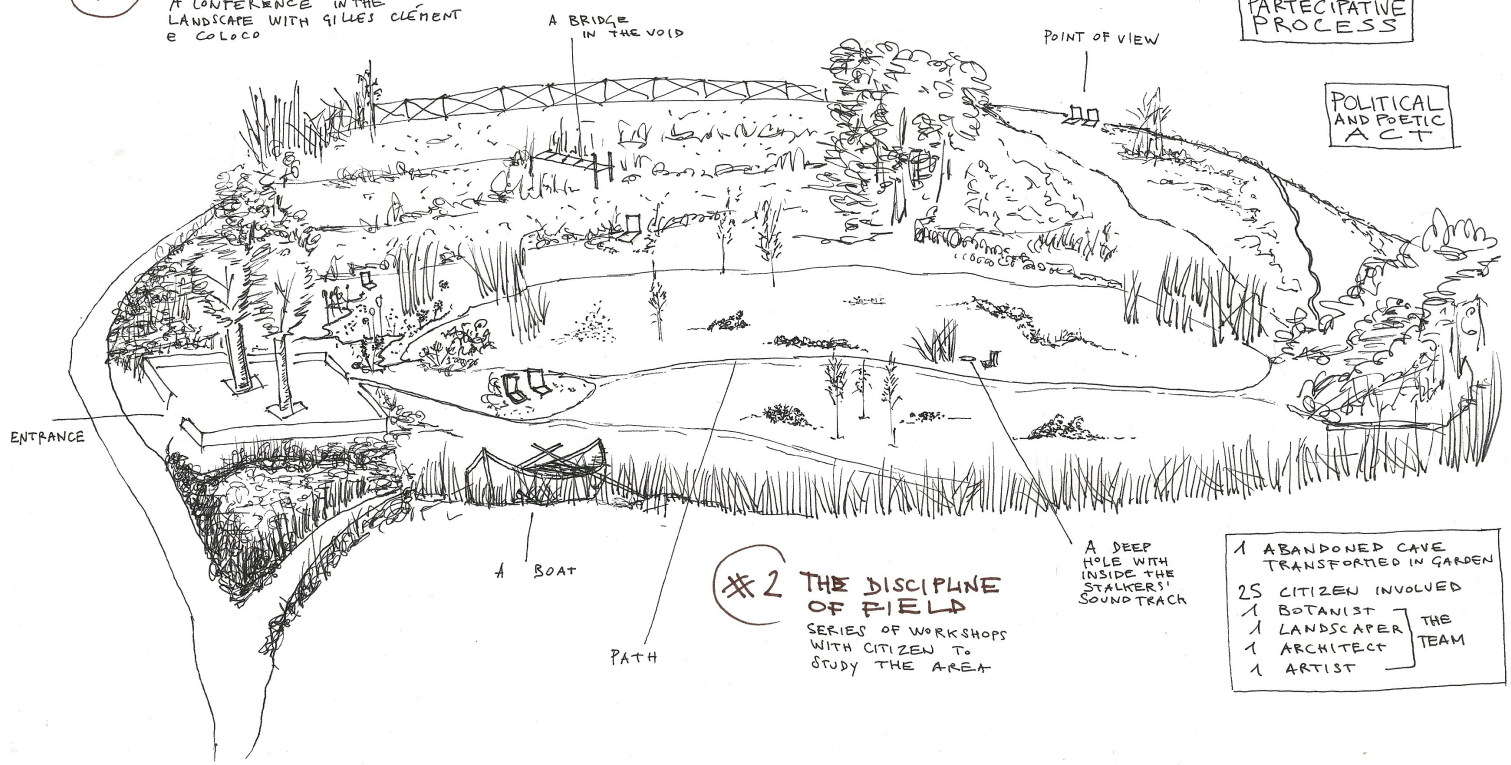 A CONFERENCE IN THE
LANDSCAPE WITH GILLES CLÉMENT
e COLOCO
A BRIDGE
IN THE VOID
POINT OF VIEW
PARTECIPATIVE
PROCESS
POLITICAL
AND POETIC
ACT
ENTRANCE
A BOAT
PATH
#2 THE DISCIPLINE
OF FIELD
SERIES OF WORKSHOPS
WITH CITIZEN TO
STUDY THE AREA
A DEEP
HOLE WITH
INSIDE THE
STALKERS'
SOUNDTRACK
1 ABANDONED CAVE
TRANSFORMED IN GARDEN
25 CITIZEN INVOLVED
1 BOTANIST
1 LANDSCAPER
1 ARCHITECT
1 ARTIST
THE
TEAM